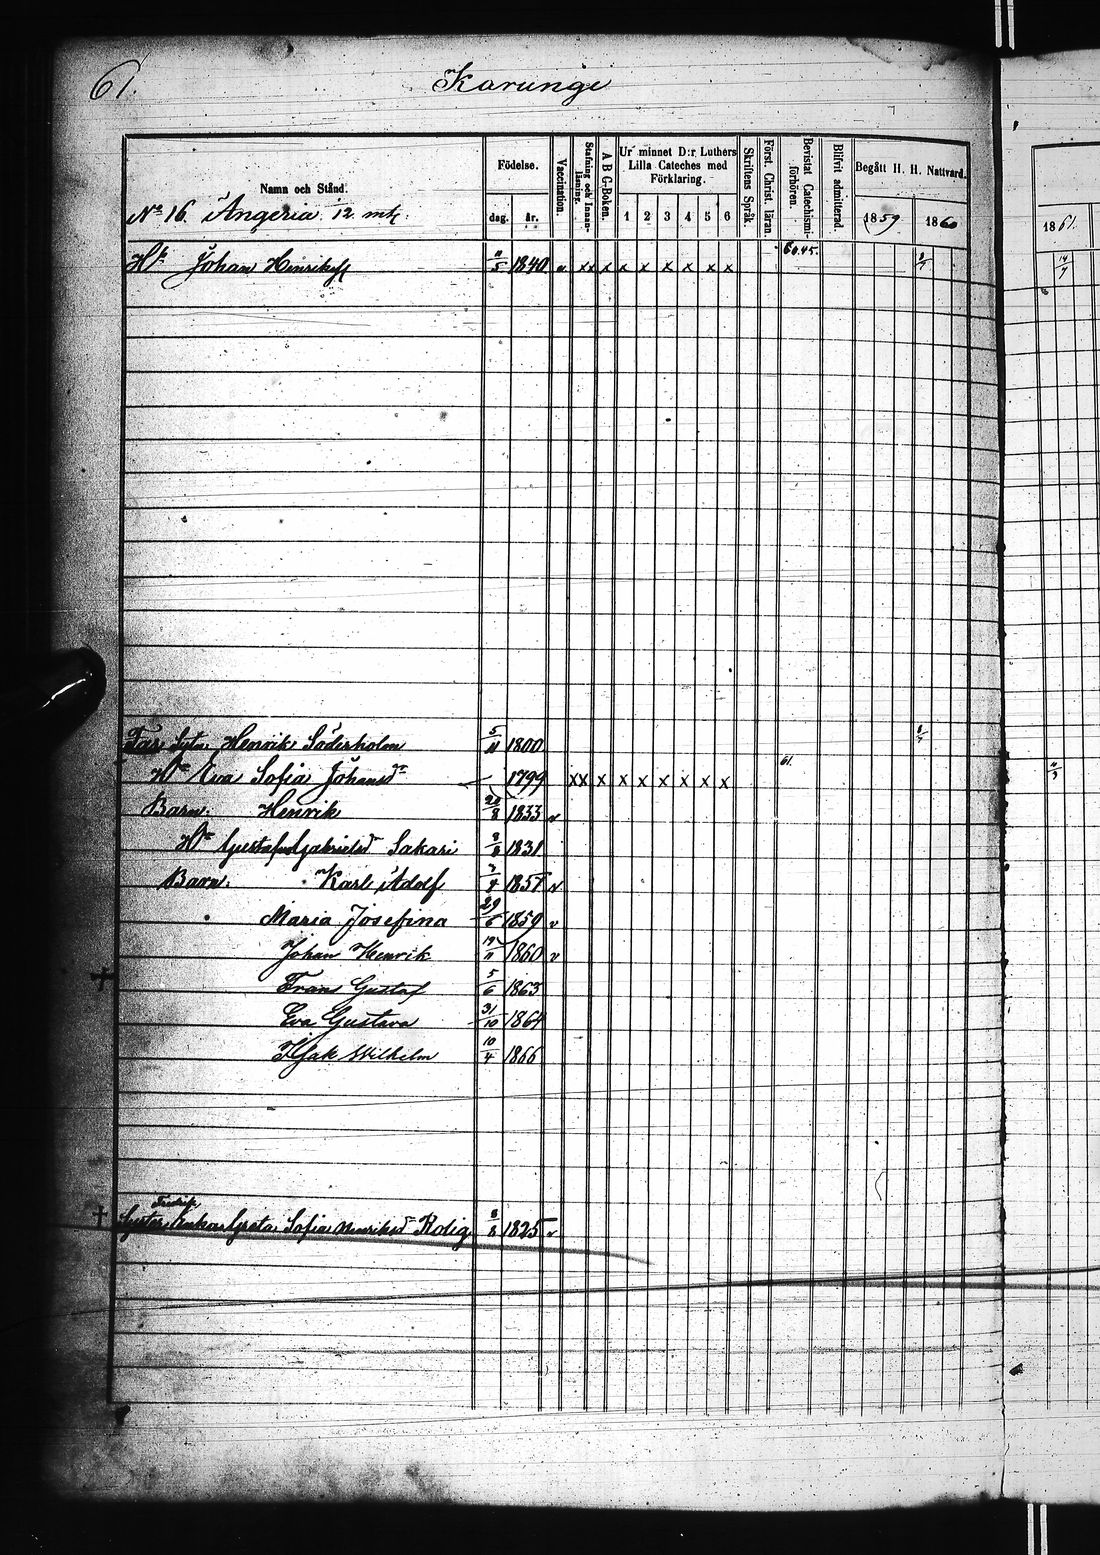 61.
Karunge
Namn och Stånd.
Födelse.
dag. år.
Vaccination.
Stafning och Innan-läsning.
A B C-Boken.
Ur minnet D:r Luthers Lilla Cateches med Förklaring.
1 2 3 4 5 6
Skriftens Språk.
Först. Christ. läran.
Bevistat Catechismi-förhören.
Blifvit admitterad.
Begått H. H. Nattvard.
1859 1860
1861.
No 16. Angeria 12. mtl.
60.45.
Johan 11/5 1840 v xx x x x x x x x 14/7
Far Henrik Söderholm 5/11 1800
61.
Hu Eva Sofia Johansdr 1799 xx x x x x x x x
Barn: Henrik 1833 v
Hu Gustafva Gabrielsdr Sakari 8/8 1831
Barn: Karl Adolf 1857 v
Maria Josefina 29/6 1859 v
Johan Henrik 1860 v
Frans Gustaf 5/6 1863
Eva Gustava 31/10 1864
Isak Wilhelm 10/4 1866
Syster Enkan Greta Sofia Henriksd Rolig 8/8 1825 v